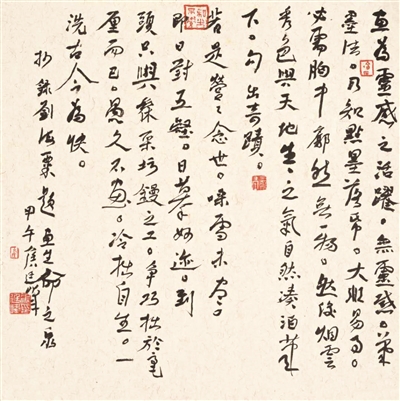 画為靈感之活躍。無靈感。筆
墨法。乃知點墨落紙。大非易事。
必需胸中廓然無一物。然後烟雲
秀色與天地生生之氣自然湊泊筆
下。幻出奇蹟。
若是營營念世。澡雪未盡。
即日對丘壑。日摹妙迹。到
頭只與髹采圬鏝之工。爭巧拙於毫
厘而已。愚久不畫。冷拙自生。一
洗古人為快。
抄錄劉海粟題画生命之泉
甲午